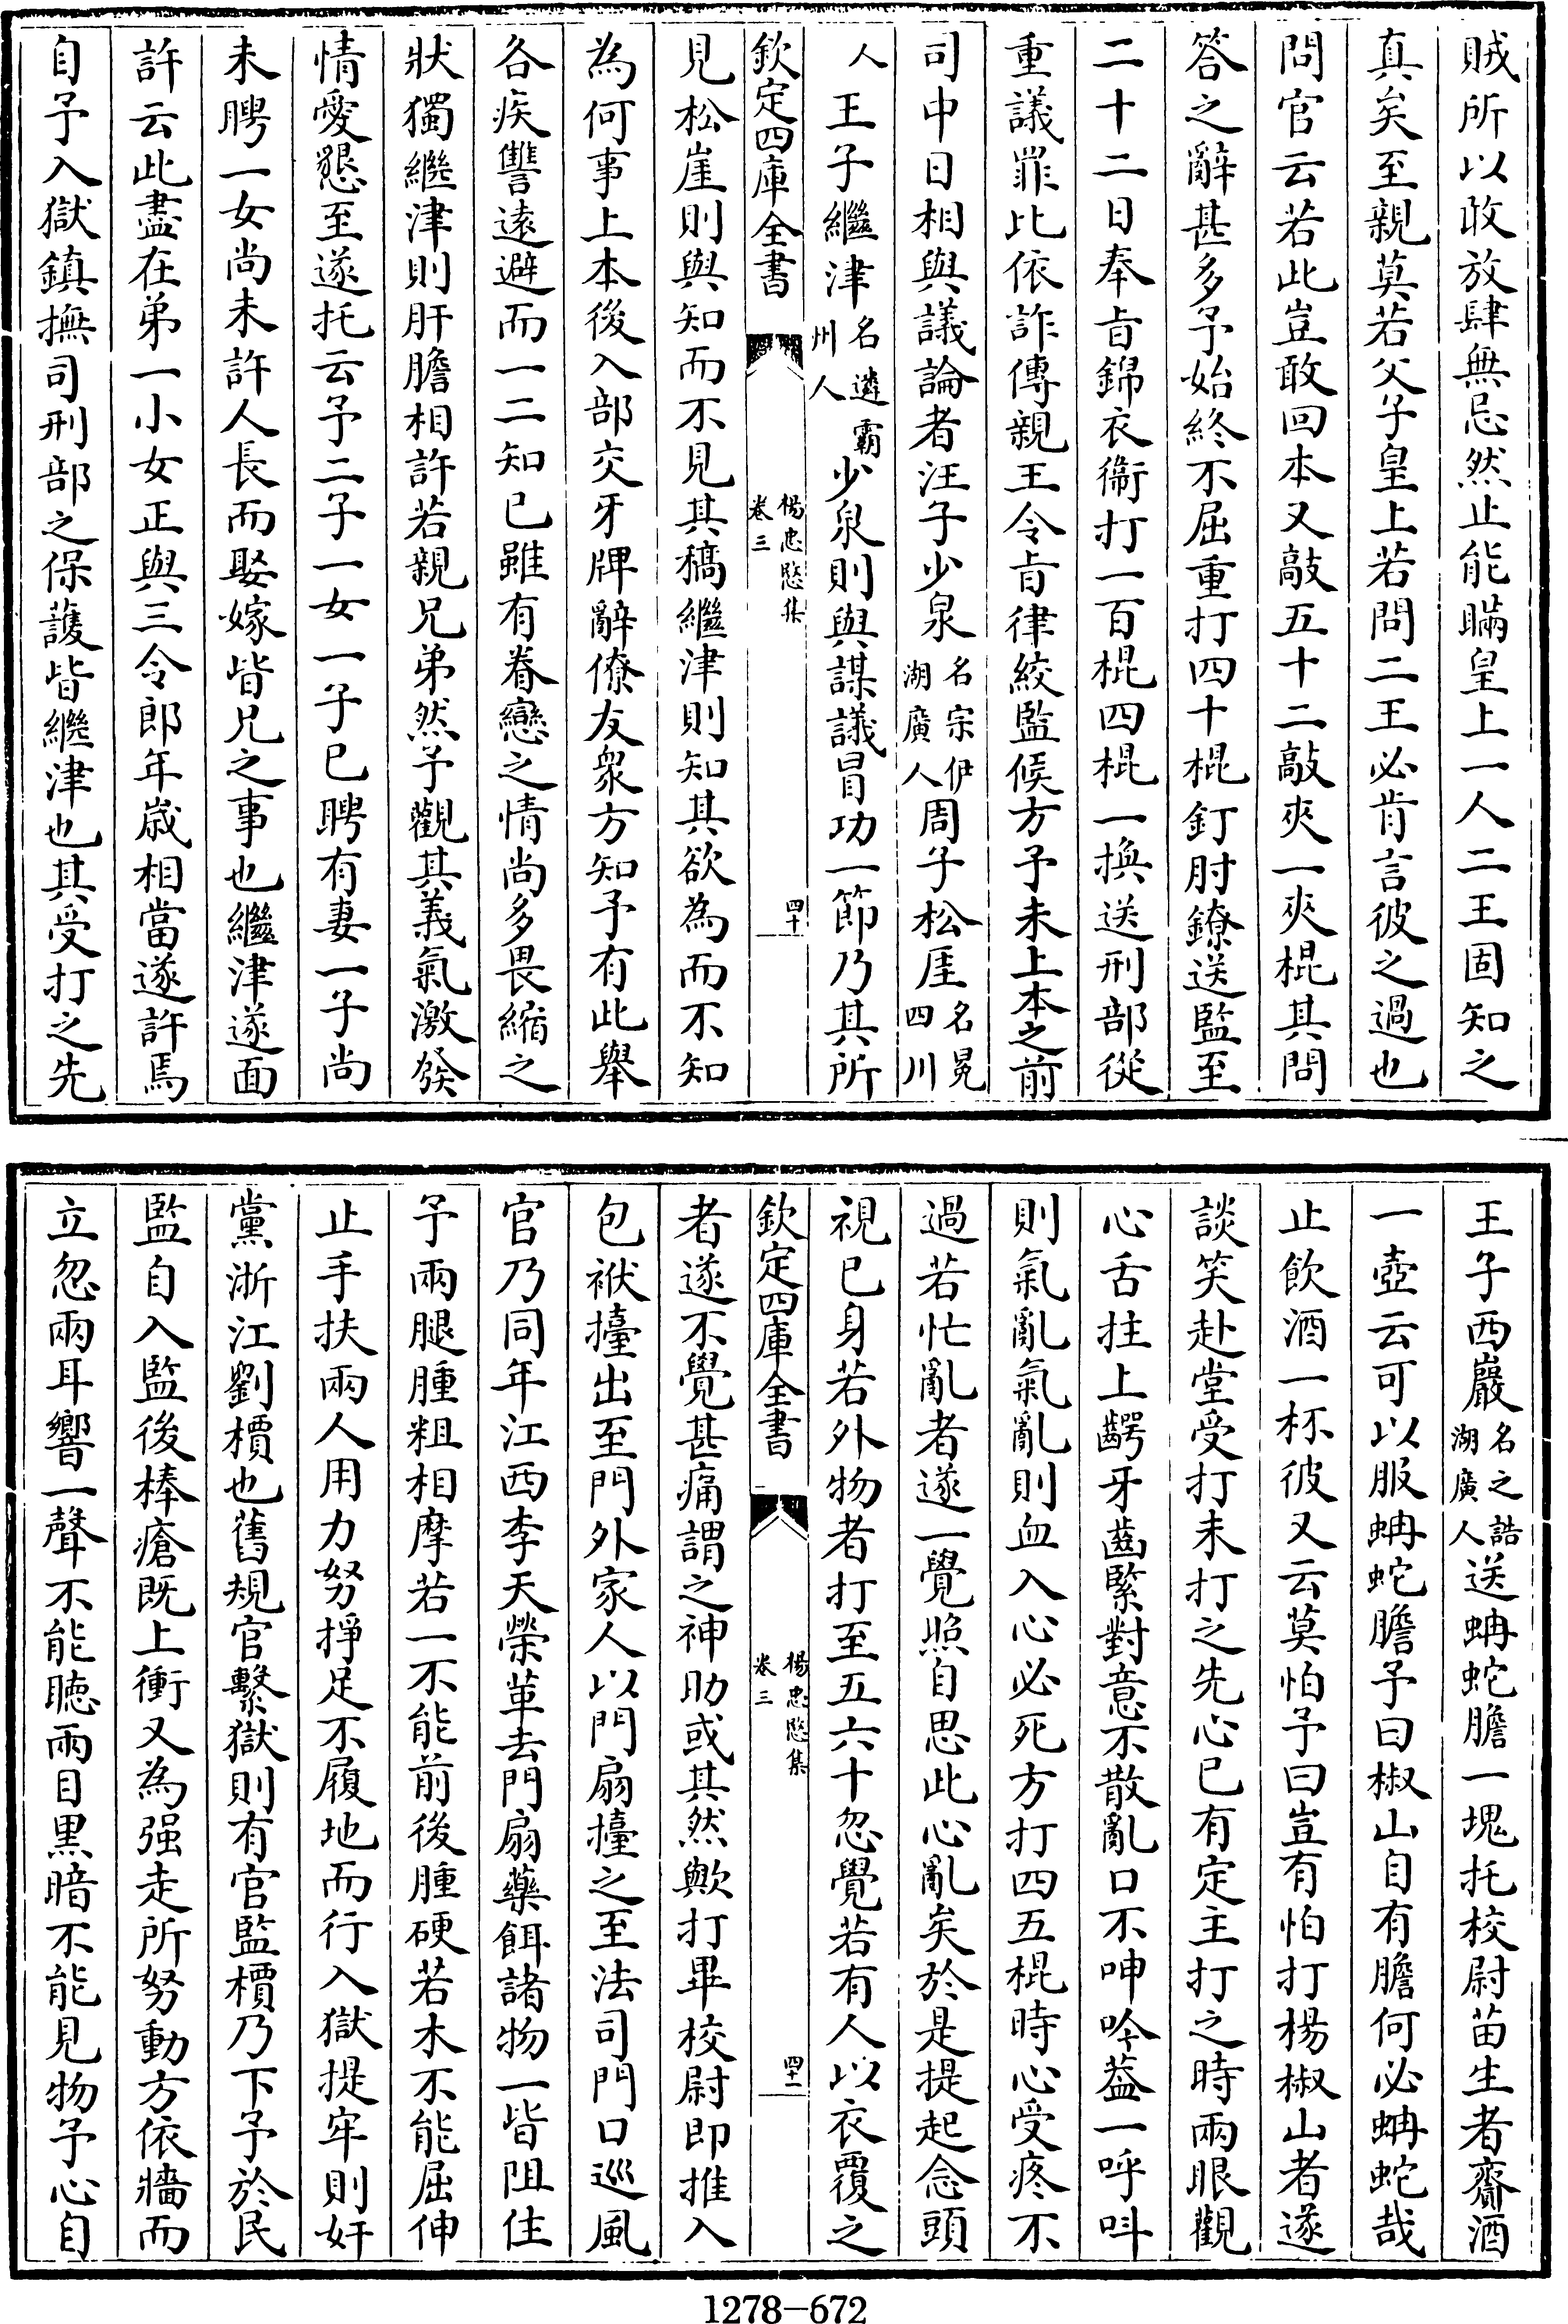 賊所以敢放肆無忌然止能瞞皇上一人二王固知之
真矣至親莫若父子皇上若問二王必肯言彼之過也
問官云若此豈敢回本又敲五十二敲夾一夾棍其問
答之辭甚多予始終不屈重打四十棍釘肘鐐送監至
二十二日奉旨錦衣衛打一百棍四棍一換送刑部從
重議罪比依詐傳親王令旨律絞監候方予未上本之前
司中日相與議論者汪子少泉名宗伊湖廣人周子松厓名冕四川
人王子繼津名遴霸州人少泉則與謀議冒功一節乃其所
欽定四庫全書
楊忠愍集
卷三
四十
見松崖則與知而不見其稿繼津則知其欲為而不知
為何事上本後入部交牙牌辭僚友衆方知予有此舉
各疾讐遠避而一二知已雖有眷戀之情尚多畏縮之
狀獨繼津則肝膽相許若親兄弟然予觀其義氣激發
情愛懇至遂托云予二子一女一子已聘有妻一子尚
未聘一女尚未許人長而娶嫁皆兄之事也繼津遂面
許云此盡在弟一小女正與三令郎年歲相當遂許焉
自予入獄鎮撫司刑部之保護皆繼津也其受打之先
王子西巖名之誥湖廣人送蚺蛇膽一塊托校尉苗生者齎酒
一壺云可以服蚺蛇膽予曰椒山自有膽何必蚺蛇哉
止飲酒一杯彼又云莫怕予曰豈有怕打楊椒山者遂
談笑赴堂受打未打之先心已有定主打之時兩眼觀
心舌拄上齶牙齒緊對意不散亂口不呻吟葢一呼呌
則氣亂氣亂則血入心必死方打四五棍時心受疼不
過若忙亂者遂一覺照自思此心亂矣於是提起念頭
視已身若外物者打至五六十忽覺若有人以衣覆之
欽定四庫全書
楊忠愍集
卷三
四十一
者遂不覺甚痛謂之神助或其然歟打畢校尉即推入
包袱擡出至門外家人以門扇擡之至法司門口巡風
官乃同年江西李天榮革去門扇藥餌諸物一皆阻住
予兩腿腫粗相摩若一不能前後腫硬若木不能屈伸
止手扶兩人用力努掙足不履地而行入獄提牢則奸
黨浙江劉檟也舊規官繫獄則有官監檟乃下予於民
監自入監後棒瘡既上衝又為强走所努動方依牆而
立忽兩耳響一聲不能聽兩目黑暗不能見物予心自
1278-672